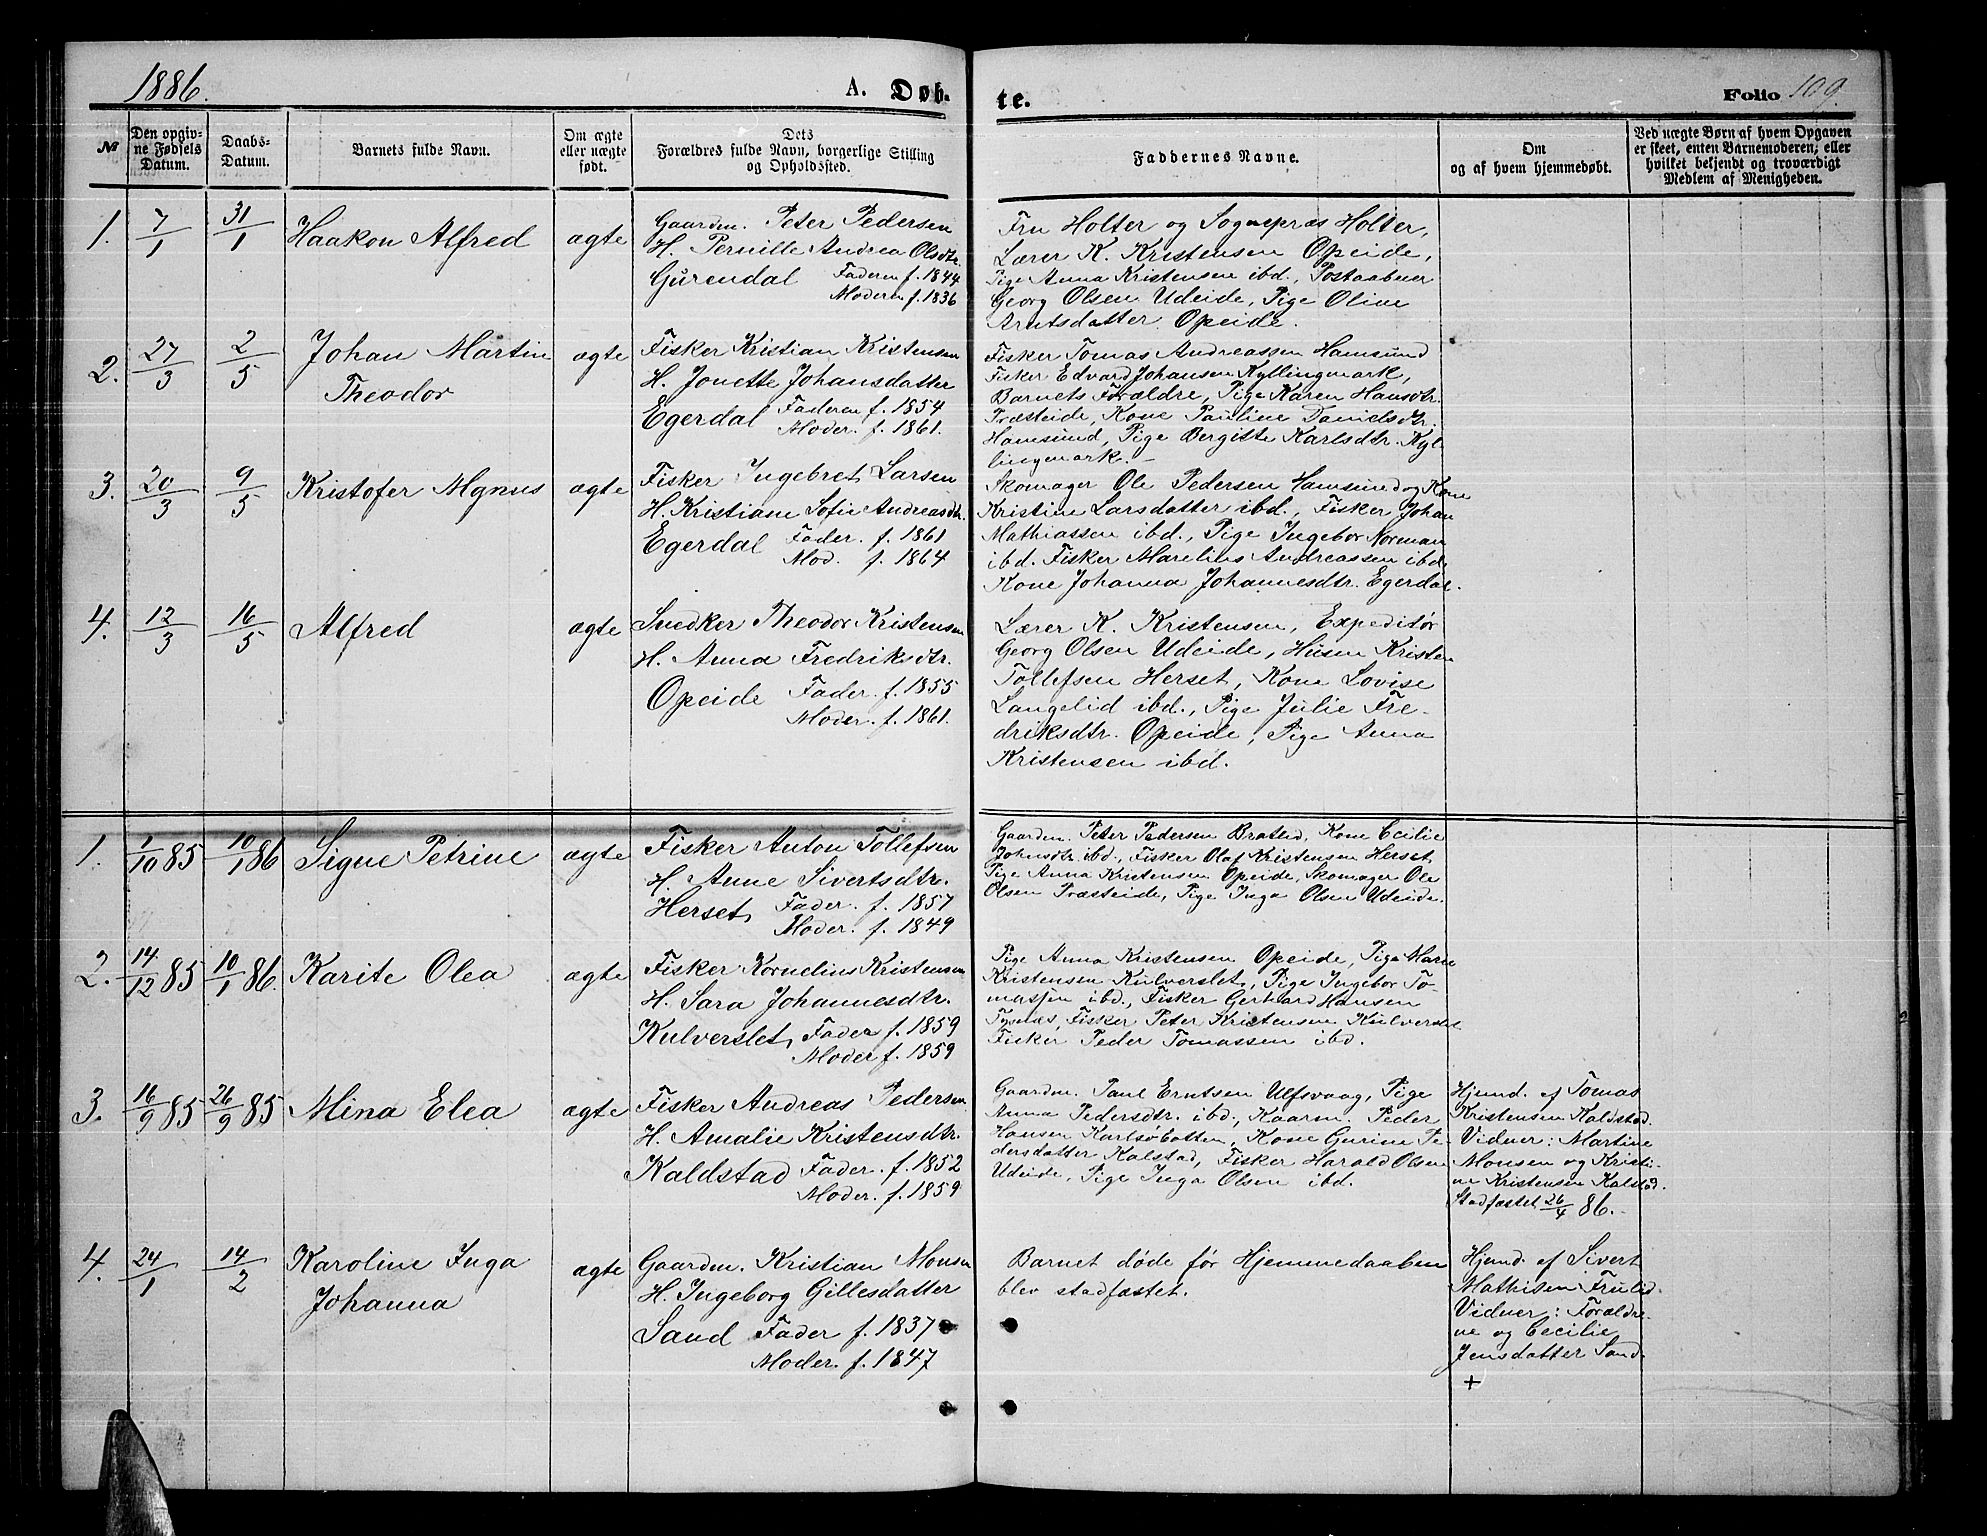 1886. A. Døb- te. Folio 109.
№
Den opgiv-
ne Fødsels
Datum.
Daabs-
Datum.
Barnets fulde Navn.
Om ægte
eller uægte
født.
Dets
Forældres fulde Navn, borgerlige Stilling
og Opholdssted.
Faddernes Navne.
Om
og af hvem hjemmedøbt.
Ved uægte Børn af hvem Opgaven
er skeet, enten Barnemoderen; eller
hvilket bekjendt og troværdigt
Medlem af Menigheden.
1. 7/1 31/1 Haakon Alfred ægte
Gaardm. Peter Pedersen
H. Pernille Andrea Olsdtr.
Gurendal Faderen f. 1844
Moderen f. 1836
Fru Holter og Sognepræs Holter,
Lærer K. Kristensen Opeide,
Pige Anna Kristensen ibd., Postaabner
Georg Olsen Udeide, Pige Oline
Arntsdatter Opeide.
2. 27/3 2/5 Johan Martin ægte
Theodor
Fisker Kristian Kristensen
H. Jonette Johansdatter
Egerdal Faderen f. 1854
Moder. f. 1861.
Fisker Tomas Andreassen Hamsund
Fisker Edvard Johansen Kyllingmark,
Barnets Forældre, Pige Karen Hansdtr.
Præsteide, Kone Pauline Danielsdtr.
Hamsund, Pige Bergitte Karlsdtr. Kyl-
lingmark.-
3. 20/3 9/5 Kristofer Mgnus ægte
Fisker Ingebret Larsen
H. Kristiane Sofie Andreasdtr.
Egerdal Fader. f. 1861
Mod. f. 1864
Skomager Ole Pedersen Hamsund og Kone
Kristine Larsdatter ibd., Fisker Johan
Mathiassen ibd., Pige Ingebor Norman
ibd. Fisker Marelius Andreassen ibd.
Kone Johanna Johannesdtr. Egerdal.
4. 12/3 16/5 Alfred ægte
Snedker Theodor Kristensen
H. Anna Fredriksdtr.
Opeide Fader. f. 1855
Moder. f. 1861.
Lærer K. Kristensen, Expeditør
Georg Olsen Udeide, Husm Kristen
Tollefsen Herset, Kone Lovise
Langelid ibd., Pige Julie Fre-
driksdtr. Opeide, Pige Anna
Kristensen ibd.
1. 1/10 85 10/1 86 Signe Petrine ægte
Fisker Anton Tollefsen
H. Anne Sivertsdtr.
Herset Fader. f. 1857
Moder. f. 1849
Gaardm. Peter Pedersen Bratlid, Kone Cecilie
Johnsdtr. ibd., Fisker Olaf Kristensen Herset
Pige Anna Kristensen Opeide, Skomager Ole
Olsen Præsteide, Pige Inga Olsen Udeide.
2. 14/12 85 10/1 86. Karite Olea ægte
Fisker Kornelius Kristensen
H. Sara Johannesdtr.
Kulverslet Fader f. 1859
Moder f. 1859
Pige Anna Kristensen Opeide, Pige Marie
Kristensen Kulverslet, Pige Ingebor To-
massen ibd., Fisker Gerhard Hansen
Fisker Peter Kristensen Kulverslet
Fisker Peder Tomassen ibd.
3. 16/9 85 26/9 85 Mina Elea ægte
Fisker Andreas Pedersen
H. Amalie Kristensdtr.
Kaldstad Fader. f. 1852
Moder. f. 1859
Gaardm. Paul Erntsen Ulfsvaag, Pige
Anna Pedersdtr. ibd., Kaarm. Peder
Hansen Karlsøbotten, Kone Gurine Pe-
dersdatter Kalstad, Fisker Harald Olsen
Udeide, Pige Inga Olsen ibd.
Hjemd. af Tomas
Kristensen Kaldstad.
Vidner: Martine
Monsen og Kristi-
ne Kristensen Kalstad.
Stadfæstet 26/4 86.-
4. 24/1 14/2 Karoline Inga ægte
Johanna
Gaardm. Kristian Monsen
H. Ingeborg Gillesdatter
Sand Fader f. 1837
Moder. f. 1847
Barnet døde før Hjemmedaaben
blev stadfæstet.
Hjemd. af Sivert
Mathisen Frulid
Vidner: Forældre-
ne og Cecilie
Jensdatter Sand.
+